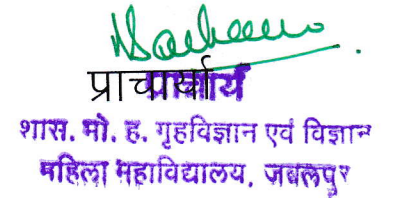 प्राचार्य
शास. मो. ह. गृहविज्ञान एवं विज्ञान
महिला महाविद्यालय, जबलपुर